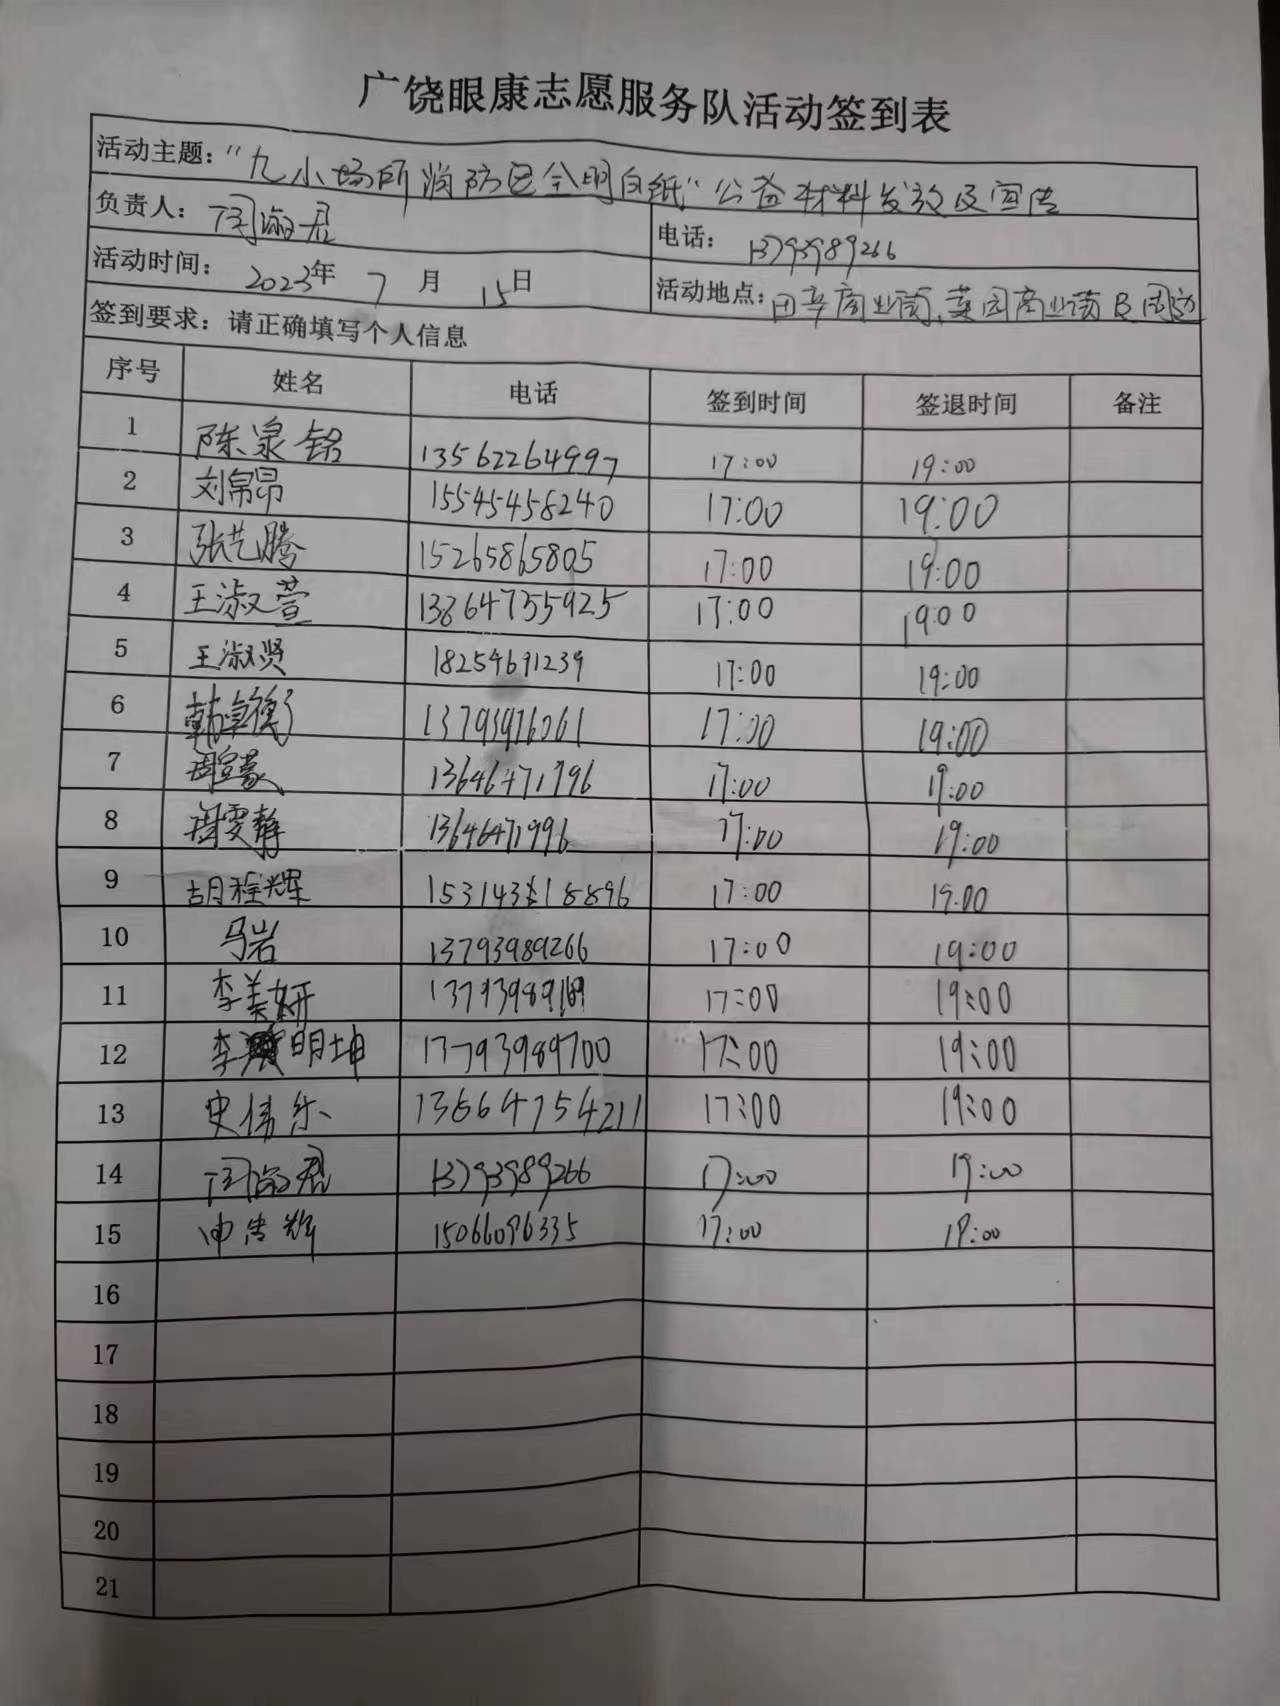 广饶眼康志愿服务队活动签到表
活动主题：“九小场所消防安全明白纸”公益材料发放及宣传
负责人：周淑君 电话：13793989266
活动时间：2023年 7 月 15日 活动地点：田辛商业街、菜园商业街及周边
签到要求：请正确填写个人信息
序号 姓名 电话 签到时间 签退时间 备注
1 陈泉铭 13562264997 17:00 19:00
2 刘帛昂 15545458240 17:00 19:00
3 张艺腾 15265865805 17:00 19:00
4 王淑萱 13864755925 17:00 19:00
5 王淑贤 18254691239 17:00 19:00
6 韩卓衡 13793976061 17:00 19:00
7 周宣豪 13646471996 17:00 19:00
8 周雯静 13646471996 17:00 19:00
9 胡程辉 15314318896 17:00 19:00
10 马岩 13793989266 17:00 19:00
11 李美妍 17:00 19:00
12 李明坤 13793989700 17:00 19:00
13 史伟乐 13664754211 17:00 19:00
14 周淑君 13793989266 17:00 19:00
15 15066096335 17:00 19:00
16
17
18
19
20
21